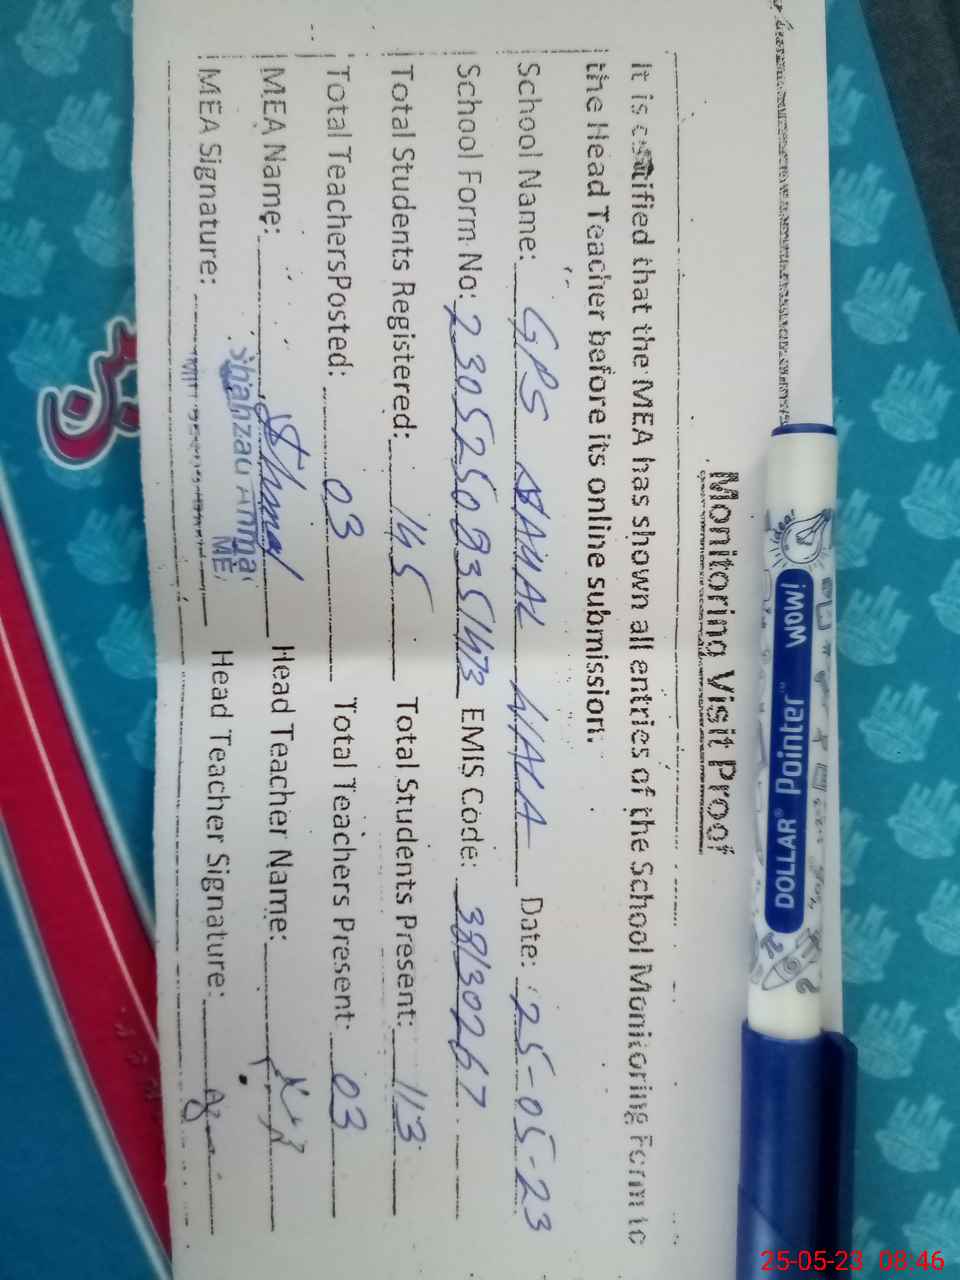 Monitoring Visit Proof
It is certified that the MEA has shown all entries of the School Monitoring Form to
the Head Teacher before its online submission.
School Name: GPS JAMAL WALA Date: 25-05-23
School Form No: EMIS Code: 38130267
Total Students Registered: 145 Total Students Present: 113
Total TeachersPosted: 03 Total Teachers Present: 03
MEA Name: Head Teacher Name:
MEA Signature: Head Teacher Signature:
DOLLAR Pointer WOW!
idea!
25-05-23 08:46